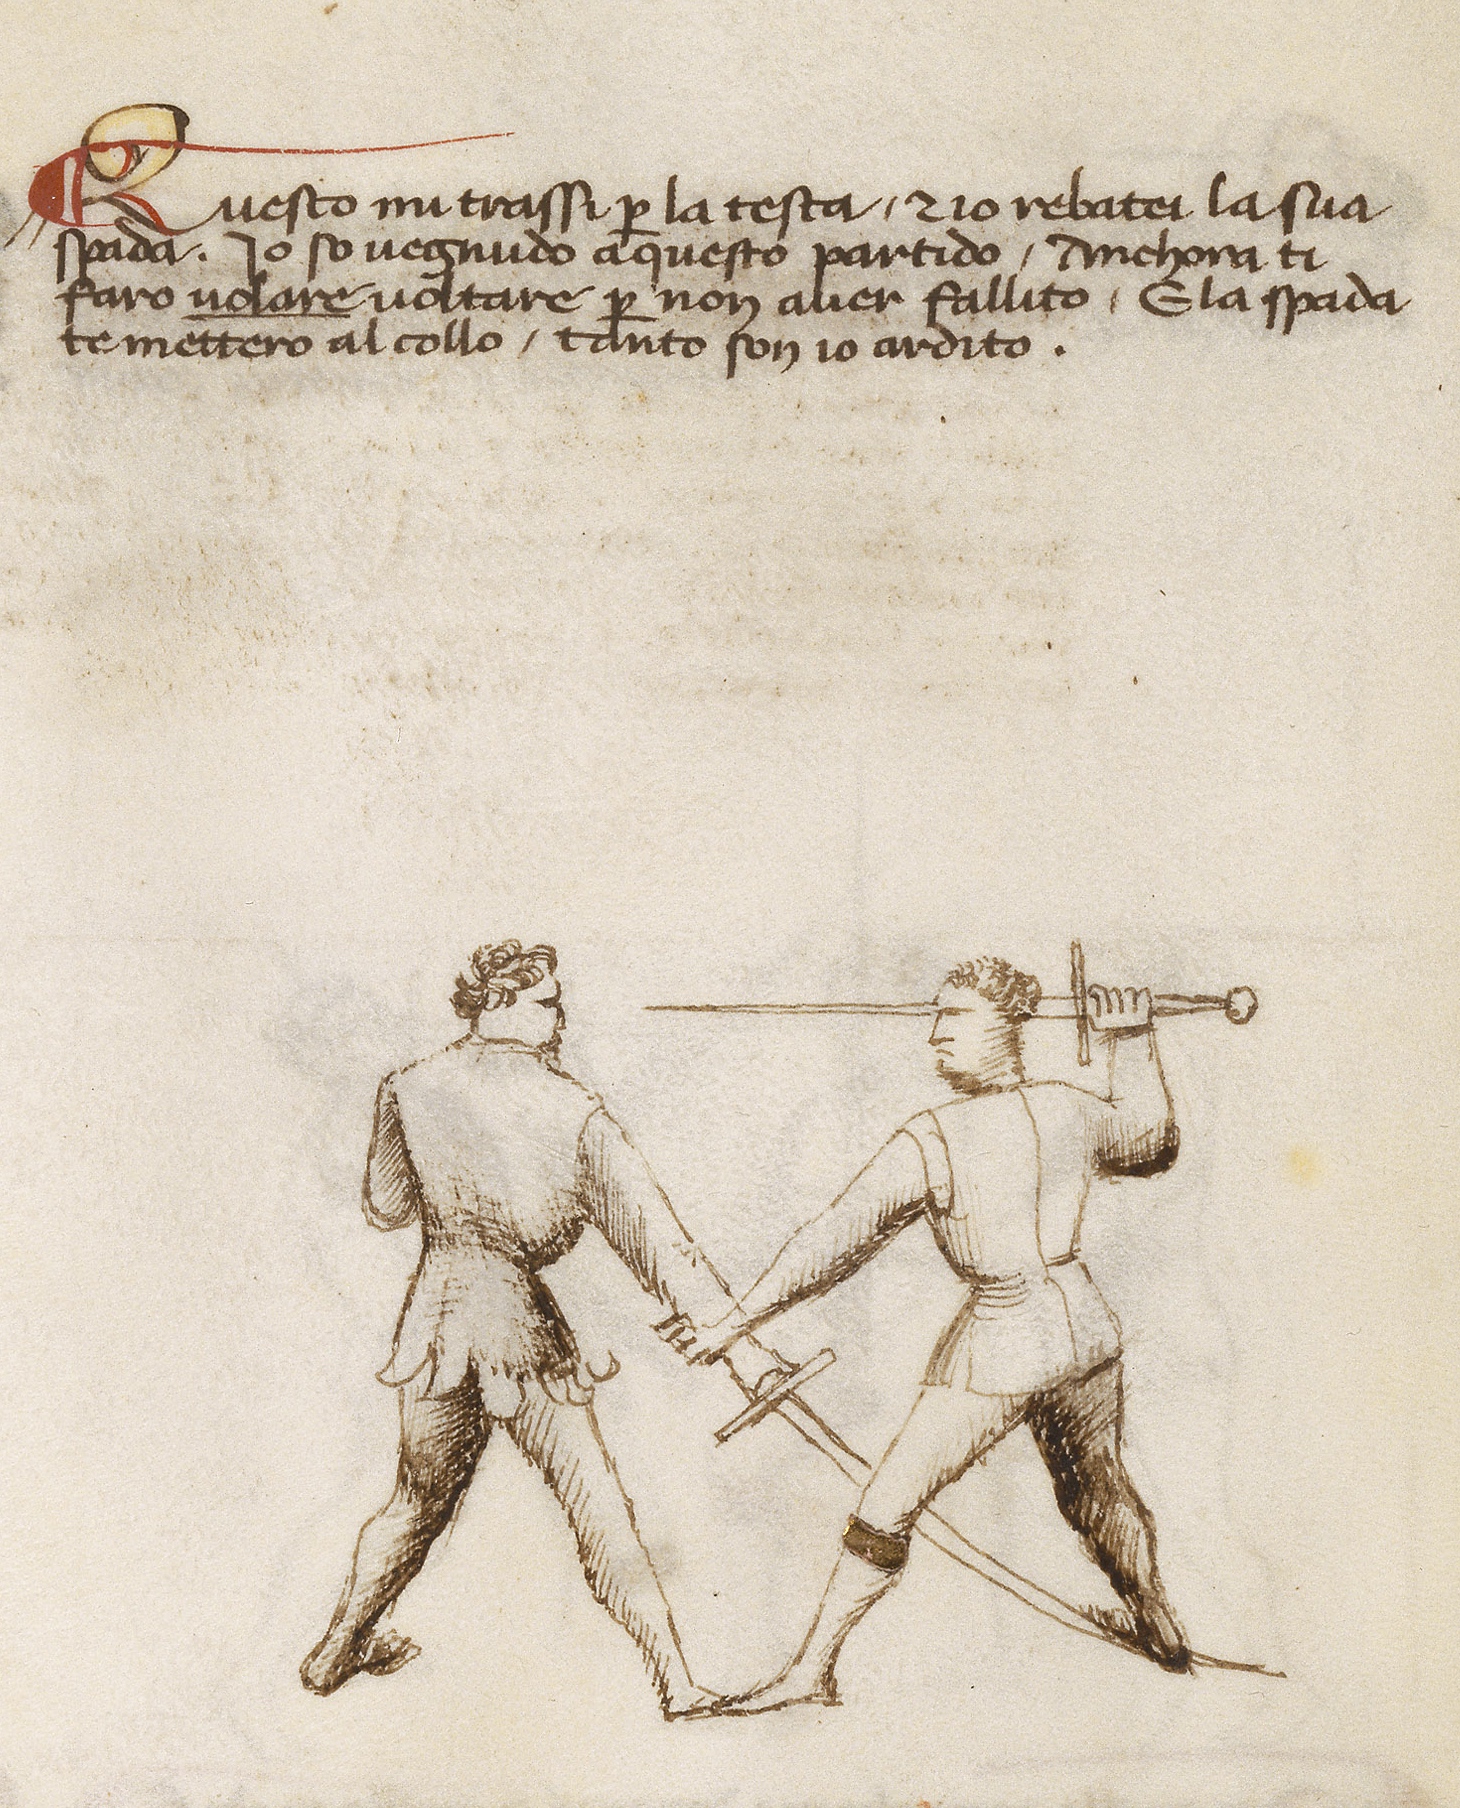 Questo mi trassi p la testa / z io rebatei la sua
spada. Io so vegnudo a questo partido / Anchora ti
faro volare voltare p non aver fallito / E la spada
te mettero al collo / tanto son io ardito.